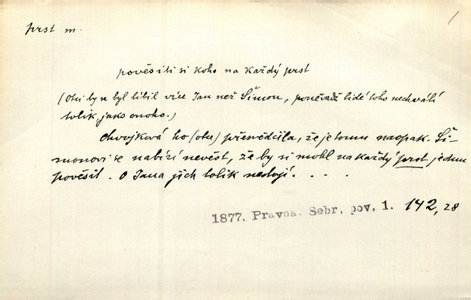 prst m.
pověsiti si koho na každý prst
(Otci by se byl líbil více Jan než Šimon, poněvadž lidé toho nechválí
tolik jako onoho.)
Chvojková ho (otce) přesvědčila, že je tomu naopak. Ši-
monovi se nabízí nevěst, že by si mohl na každý prst jednu
pověsit. O Jana jich tolik nestojí. . . .
1877. Pravda. Sebr. pov. 1. 142, 28